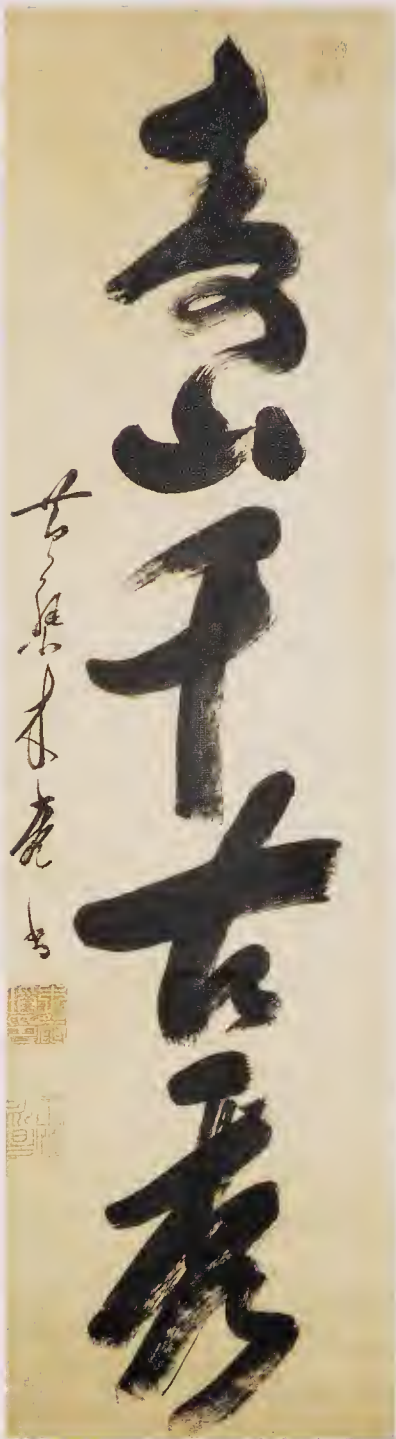 青山千古秀
黄檗木菴書